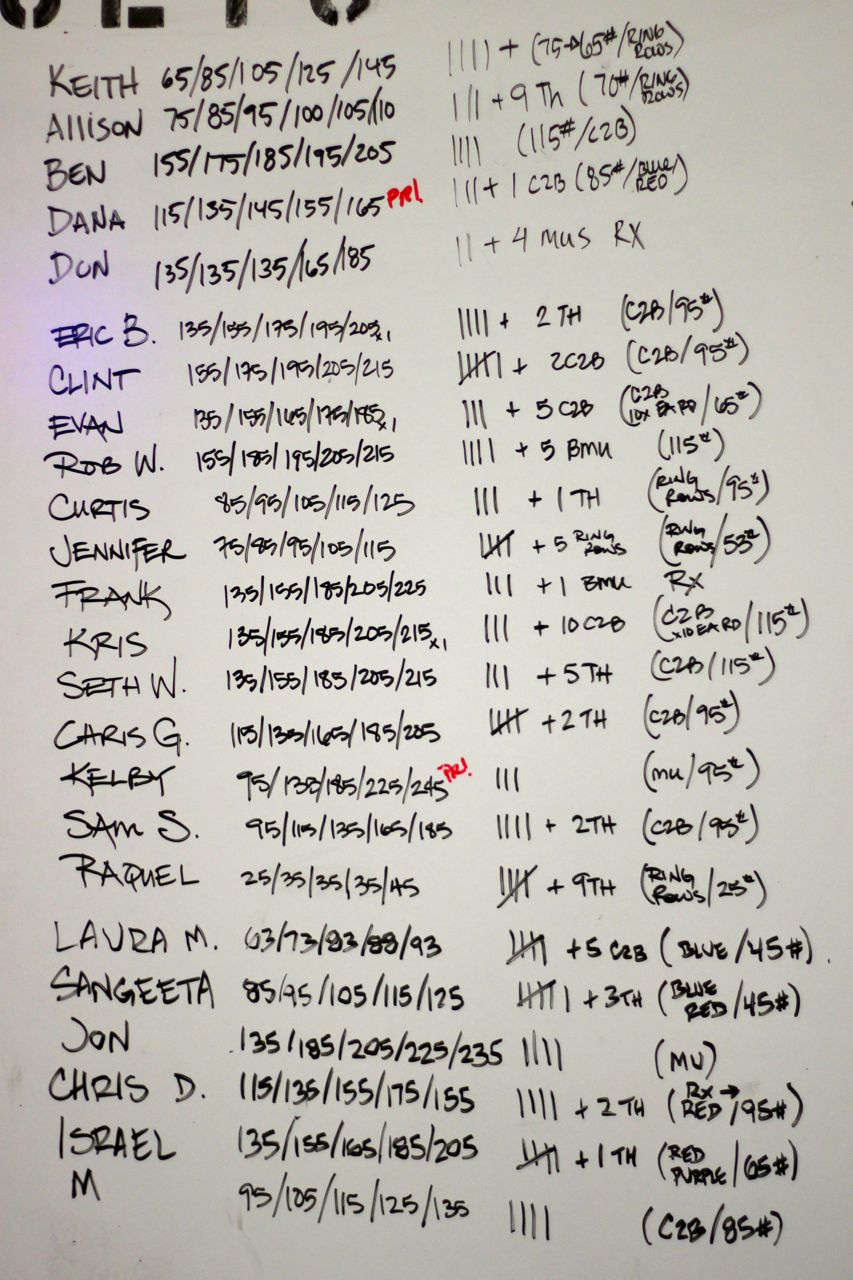 KEITH 65/85/105/125/145 |||| + (75→65#/RING ROWS)
Allison 75/85/95/100/105/110 ||| + 9 Th (70#/RING ROWS)
BEN 155/175/185/195/205 |||| (115#/C2B)
DANA 115/135/145/155/165 PR! ||| + 1 C2B (85#/BLUE/RED)
DON 135/135/135/165/185 || + 4 MUS RX
ERIC B. 135/155/175/195/205x1 |||| + 2 TH (C2B/95#)
CLINT 155/175/195/205/215 |||| | + 2C2B (C2B/95#)
EVAN 135/155/165/175/185x1 ||| + 5 C2B (C2B 10x EA RD/65#)
ROB W. 155/185/195/205/215 |||| + 5 BMU (115#)
CURTIS 85/95/105/115/125 ||| + 1 TH (RING ROWS/95#)
JENNIFER 75/85/95/105/115 |||| + 5 RING ROWS (RING ROWS/53#)
FRANK 135/155/185/205/225 ||| + 1 BMU RX
KRIS 135/155/185/205/215x1 ||| + 10 C2B (C2B x10 EA RD/115#)
SETH W. 135/155/185/205/215 ||| + 5 TH (C2B/115#)
CHRIS G. 115/135/165/185/205 |||| + 2 TH (C2B/95#)
KELBY 95/135/185/225/245 PR! ||| (MU/95#)
SAM S. 95/115/135/165/185 |||| + 2TH (C2B/95#)
RAQUEL 25/35/35/35/45 |||| + 9TH (RING ROWS/25#)
LAURA M. 63/73/83/88/93 |||| + 5 C2B (BLUE/45#)
SANGEETA 85/95/105/115/125 |||| | + 3TH (BLUE RED/45#)
JON 135/185/205/225/235 |||| (MU)
CHRIS D. 115/135/155/175/155 |||| + 2 TH (RX→ RED/95#)
ISRAEL 135/155/165/185/205 |||| + 1 TH (RED PURPLE/65#)
M 95/105/115/125/135 |||| (C2B/85#)